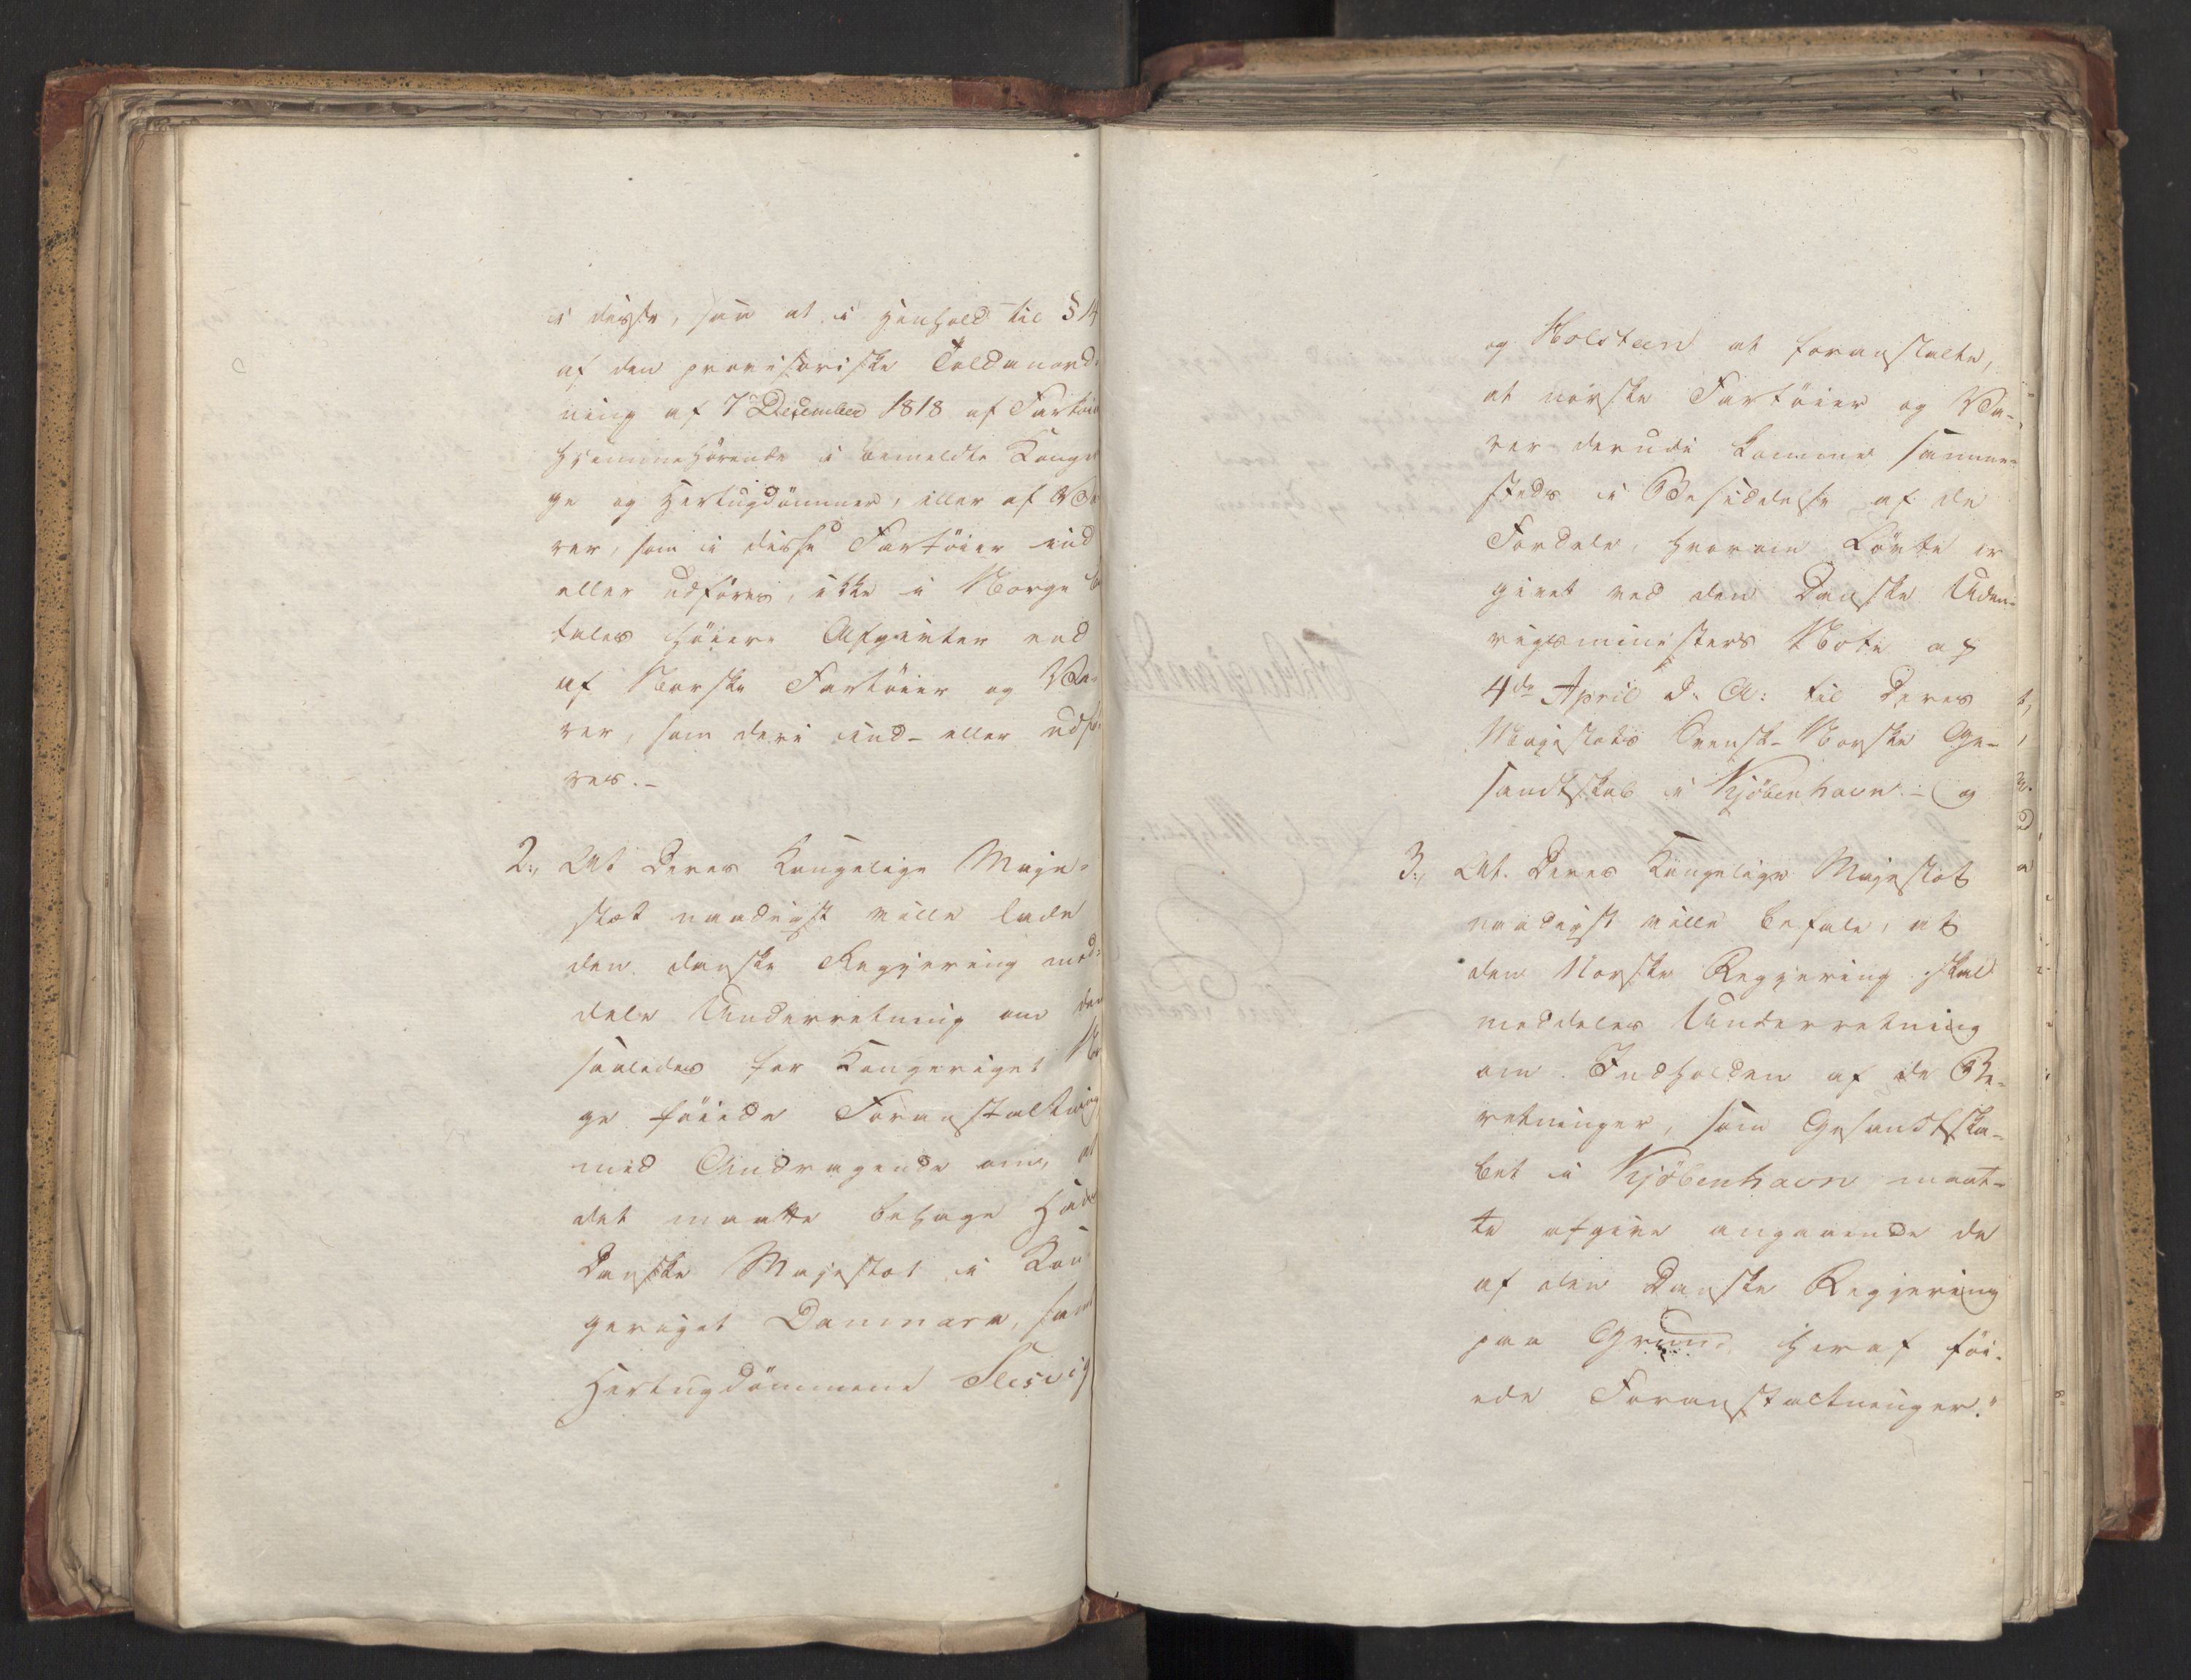 i disse, saa at i Henhold til § 14
af den provisoriske Toldanord-
ning af 7de December 1818 af Fartøier
hjemmehørende i bemeldte Konge
ge og Hertugdømmer, eller af Va
rer, som i disse Fartøier ind
eller udføres, ikke i Norge be
tales høiere Afgivter end
af Norske Fartøier og Va-
rer, som deri ind- eller udfø-
res.-
2:, At Deres Kongelige Maje-
stæt naadigst ville lade
den danske Regjering med-
dele Underretning om den
saaledes for Kongeriget Nor
ge føiede Foranstaltning
med Andragende om, at
det maatte behage Hans
Danske Majestæt i Kon-
geriget Danmark, samt
Hertugdømmene Slesvig
og Holsteen at foranstalte,
at norske Fartøier og Va-
rer derudi komme samme-
steds i Besiddelse af de
Fordele, hvorom Løvte er
givet ved den Danske Uden-
rigsministers Note af
4de April d: A: til Deres
Majestæts Svensk-Norske Ge-
sandtskab i Kjøbenhavn.- og
3., At. Deres Kongelige Majestæt
naadigst ville befale, at
den Norske Regjering skal
meddeles Underretning
om Indholden af de Be-
retninger, som Gesandtska-
bet i Kjøbenhavn maat-
te afgive angaaende de
af den Danske Regjering
paa Grund heraf føi-
ede Foranstaltninger."